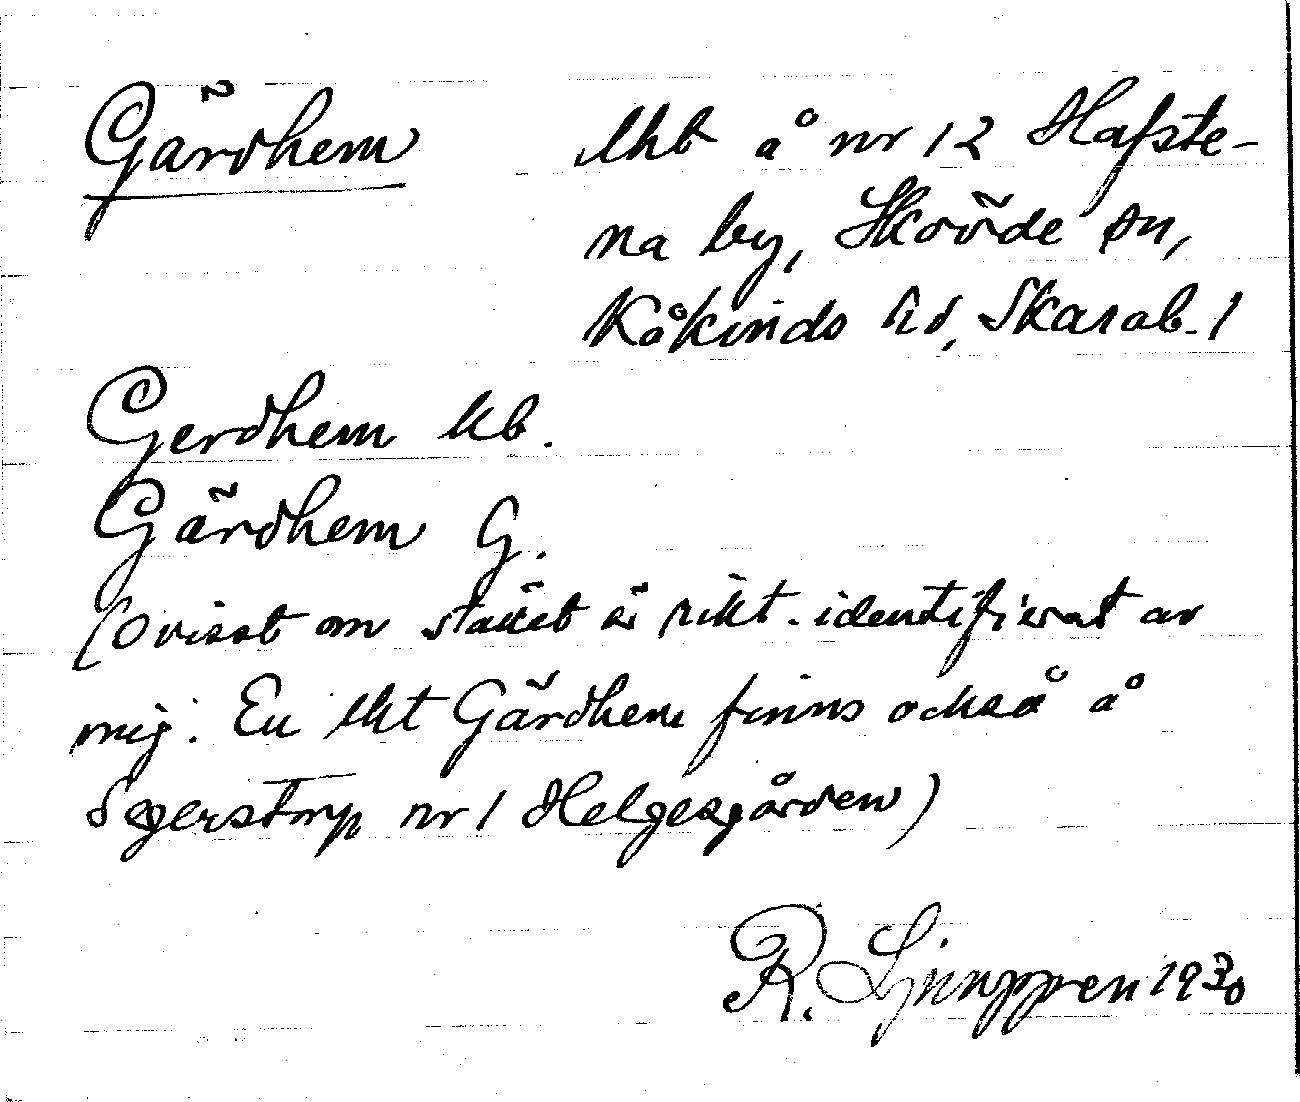 Gärdhem lht å nr 12 Hafste-
na by, Skövde sn,
Kåkinds hd, Skarab. l
Gerdhem kb.
Gärdhem G.
(Ovisst om stället är rikt. identifierat av
mig. En lht Gärdhem finns också å
Segerstorp nr 1 Helgesgården)
R. Ljunggren 1930